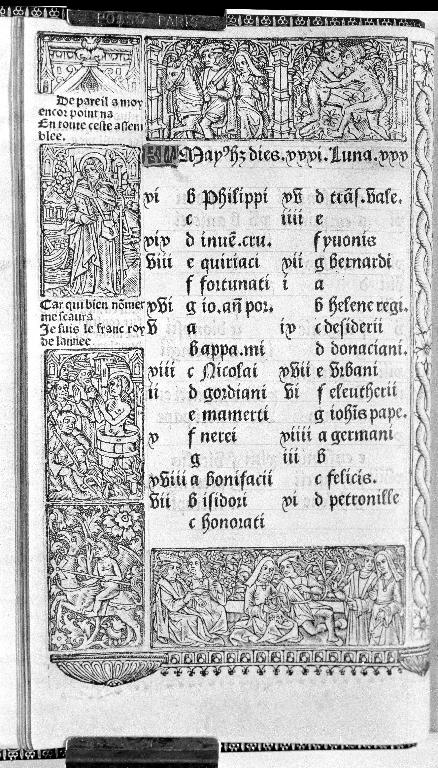 POSSO PARIS
De pareil a moy
encor point na
En toute ceste assem
blee.
Car qui bien nõmer
me scaura
Je suis le franc roy
de lannee
KL May⁹ hz dies. xxxi. Luna. xxx
xi b Philippi
c
xix d inuẽ. cru.
viii e quiriaci
f fortunati
xvi g io. añ por.
v a
b appa. mi
xiii c Nicolai
ii d gordiani
e mamerti
x f nerei
g
xviii a bonifacii
vii b isidori
c honorati
xv d trãs. vale.
iiii e
f yuonis
xii g bernardi
i a
b helene regi.
ix c desiderii
d donaciani.
xvii e Vrbani
vi f eleutherii
g iohis pape.
xiiii a germani
iii b
c felicis.
xi d petronille